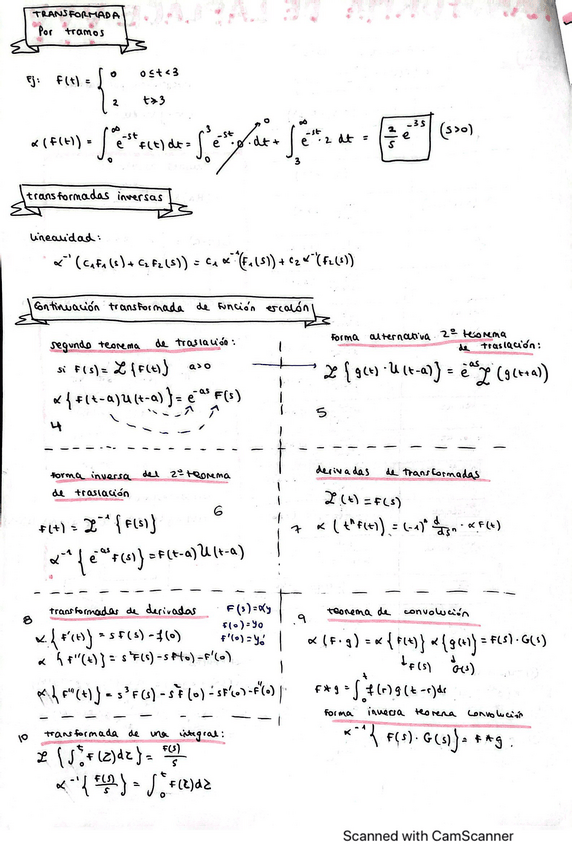 TRANSFORMADA
Por tramos
Ej: F(t) = { 0 0≤t<3
2 t≥3
α(F(t)) = ∫₀^∞ e^-st f(t) dt = ∫₀³ e^-st · 0 · dt + ∫₃^∞ e^-st · 2 dt = 2/s e^-3s (s>0)
0
transformadas inversas
linealidad:
α⁻¹ (C₁F₁(s) + C₂F₂(s)) = C₁ α⁻¹(F₁(s)) + C₂ α⁻¹(F₂(s))
Continuación transformada de función escalón
segundo teorema de traslación:
si F(s) = ℒ{F(t)} a>0
α{f(t-a)U(t-a)} = e^-as F(s)
4
Forma alternativa 2º teorema
de traslación:
ℒ{g(t)·U(t-a)} = e^-as ℒ(g(t+a))
5
forma inversa del 2º teorema
de traslación
6
F(t) = ℒ⁻¹{F(s)}
α⁻¹{e^-as F(s)} = F(t-a)U(t-a)
derivadas de transformadas
ℒ(t) = F(s)
7 α(tⁿ F(t)) = (-1)ⁿ d/dsⁿ · αF(t)
8 transformadas de derivadas
F(s) = αy
F(0) = y₀
F'(0) = y₀'
α{f'(t)} = sF(s) - f(0)
α{f''(t)} = s²F(s) - sF(0) - F'(0)
α{F'''(t)} = s³F(s) - s²F(0) - sF'(0) - F''(0)
9 teorema de convolución
α(F·g) = α{F(t)} α{g(t)} = F(s)·G(s)
↓F(s) ↓G(s)
F*g = ∫₀^t f(r)g(t-r)dr
forma inversa teorema convolución
α⁻¹{F(s)·G(s)} = F*g.
10 transformada de una integral:
ℒ{∫₀^t F(z)dz} = F(s)/s
α⁻¹{F(s)/s} = ∫₀^t F(z)dz
Scanned with CamScanner